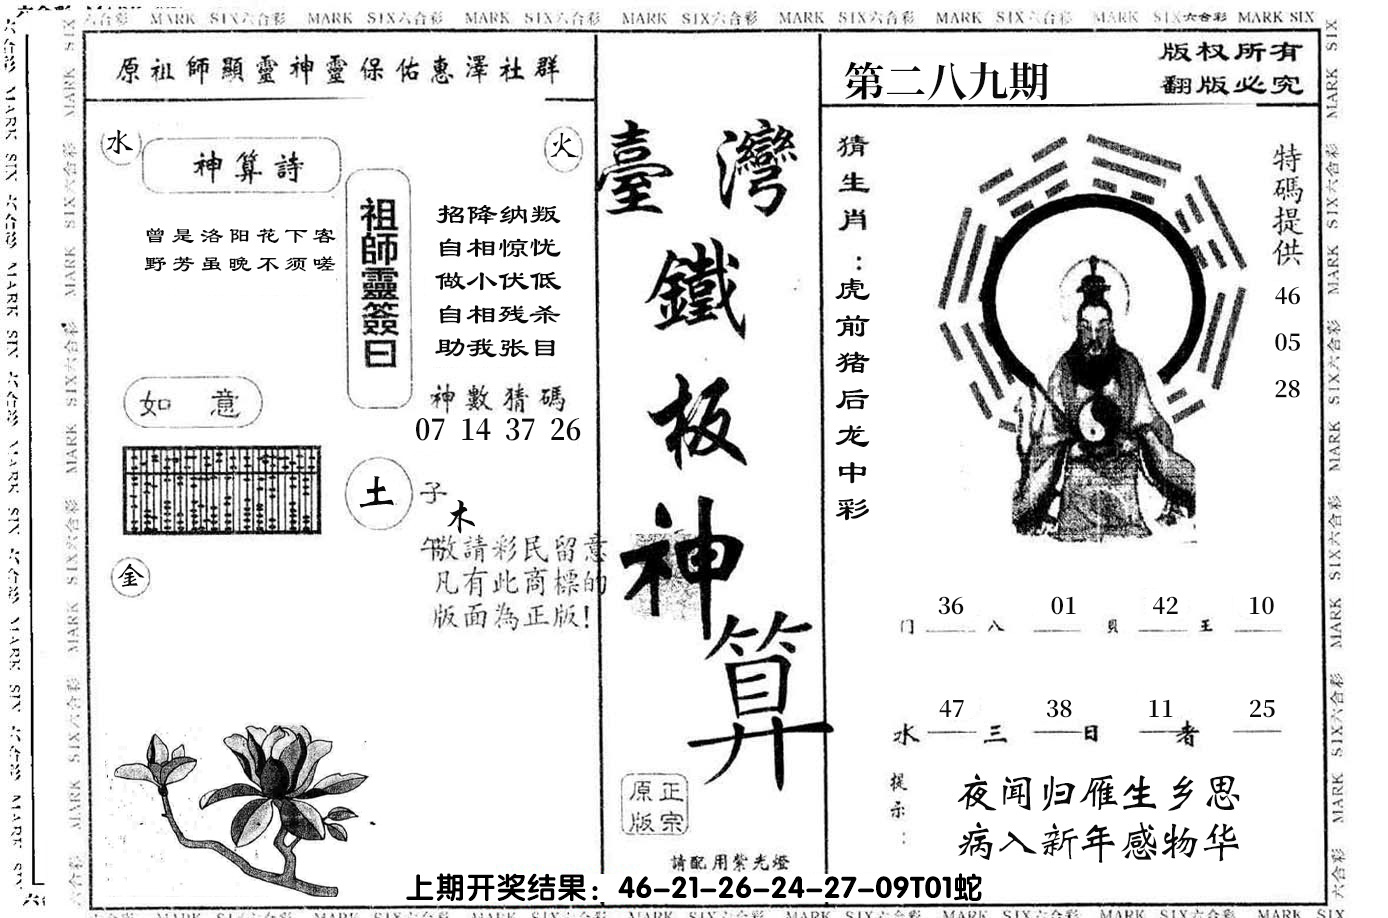 MARK SIX六合彩 MARK SIX六合彩 MARK SIX六合彩 MARK SIX六合彩 MARK SIX六合彩 MARK SIX六合彩 MARK SIX六合彩 MARK SIX
原祖師顯靈神靈保佑惠澤社群
水
火
神算詩
曾是洛阳花下客
野芳虽晚不须嗟
祖師靈簽曰
招降纳叛
自相惊忧
做小伏低
自相残杀
助我张目
神數猜碼
07 14 37 26
如意
土
子
木
午
金
敬請彩民留意
凡有此商標的
版面為正版!
臺灣
鐵
板
神
算
正宗
原版
請配用紫光燈
第二八九期
版权所有
翻版必究
猜生肖:虎前猪后龙中彩
特碼提供
46
05
28
门 36 八 01 貝 42 王 10
水 47 三 38 日 11 者 25
提示:
夜闻归雁生乡思
病入新年感物华
上期开奖结果：46-21-26-24-27-09T01蛇